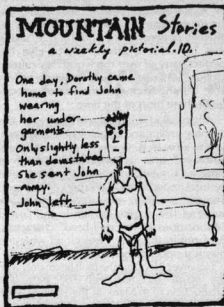 MOUNTAIN Stories
a weekly pictorial.10.
One day, Dorothy came
home to find John
wearing
her under
garments.
Only slightly less
than devastated
she sent John
away.
John left.